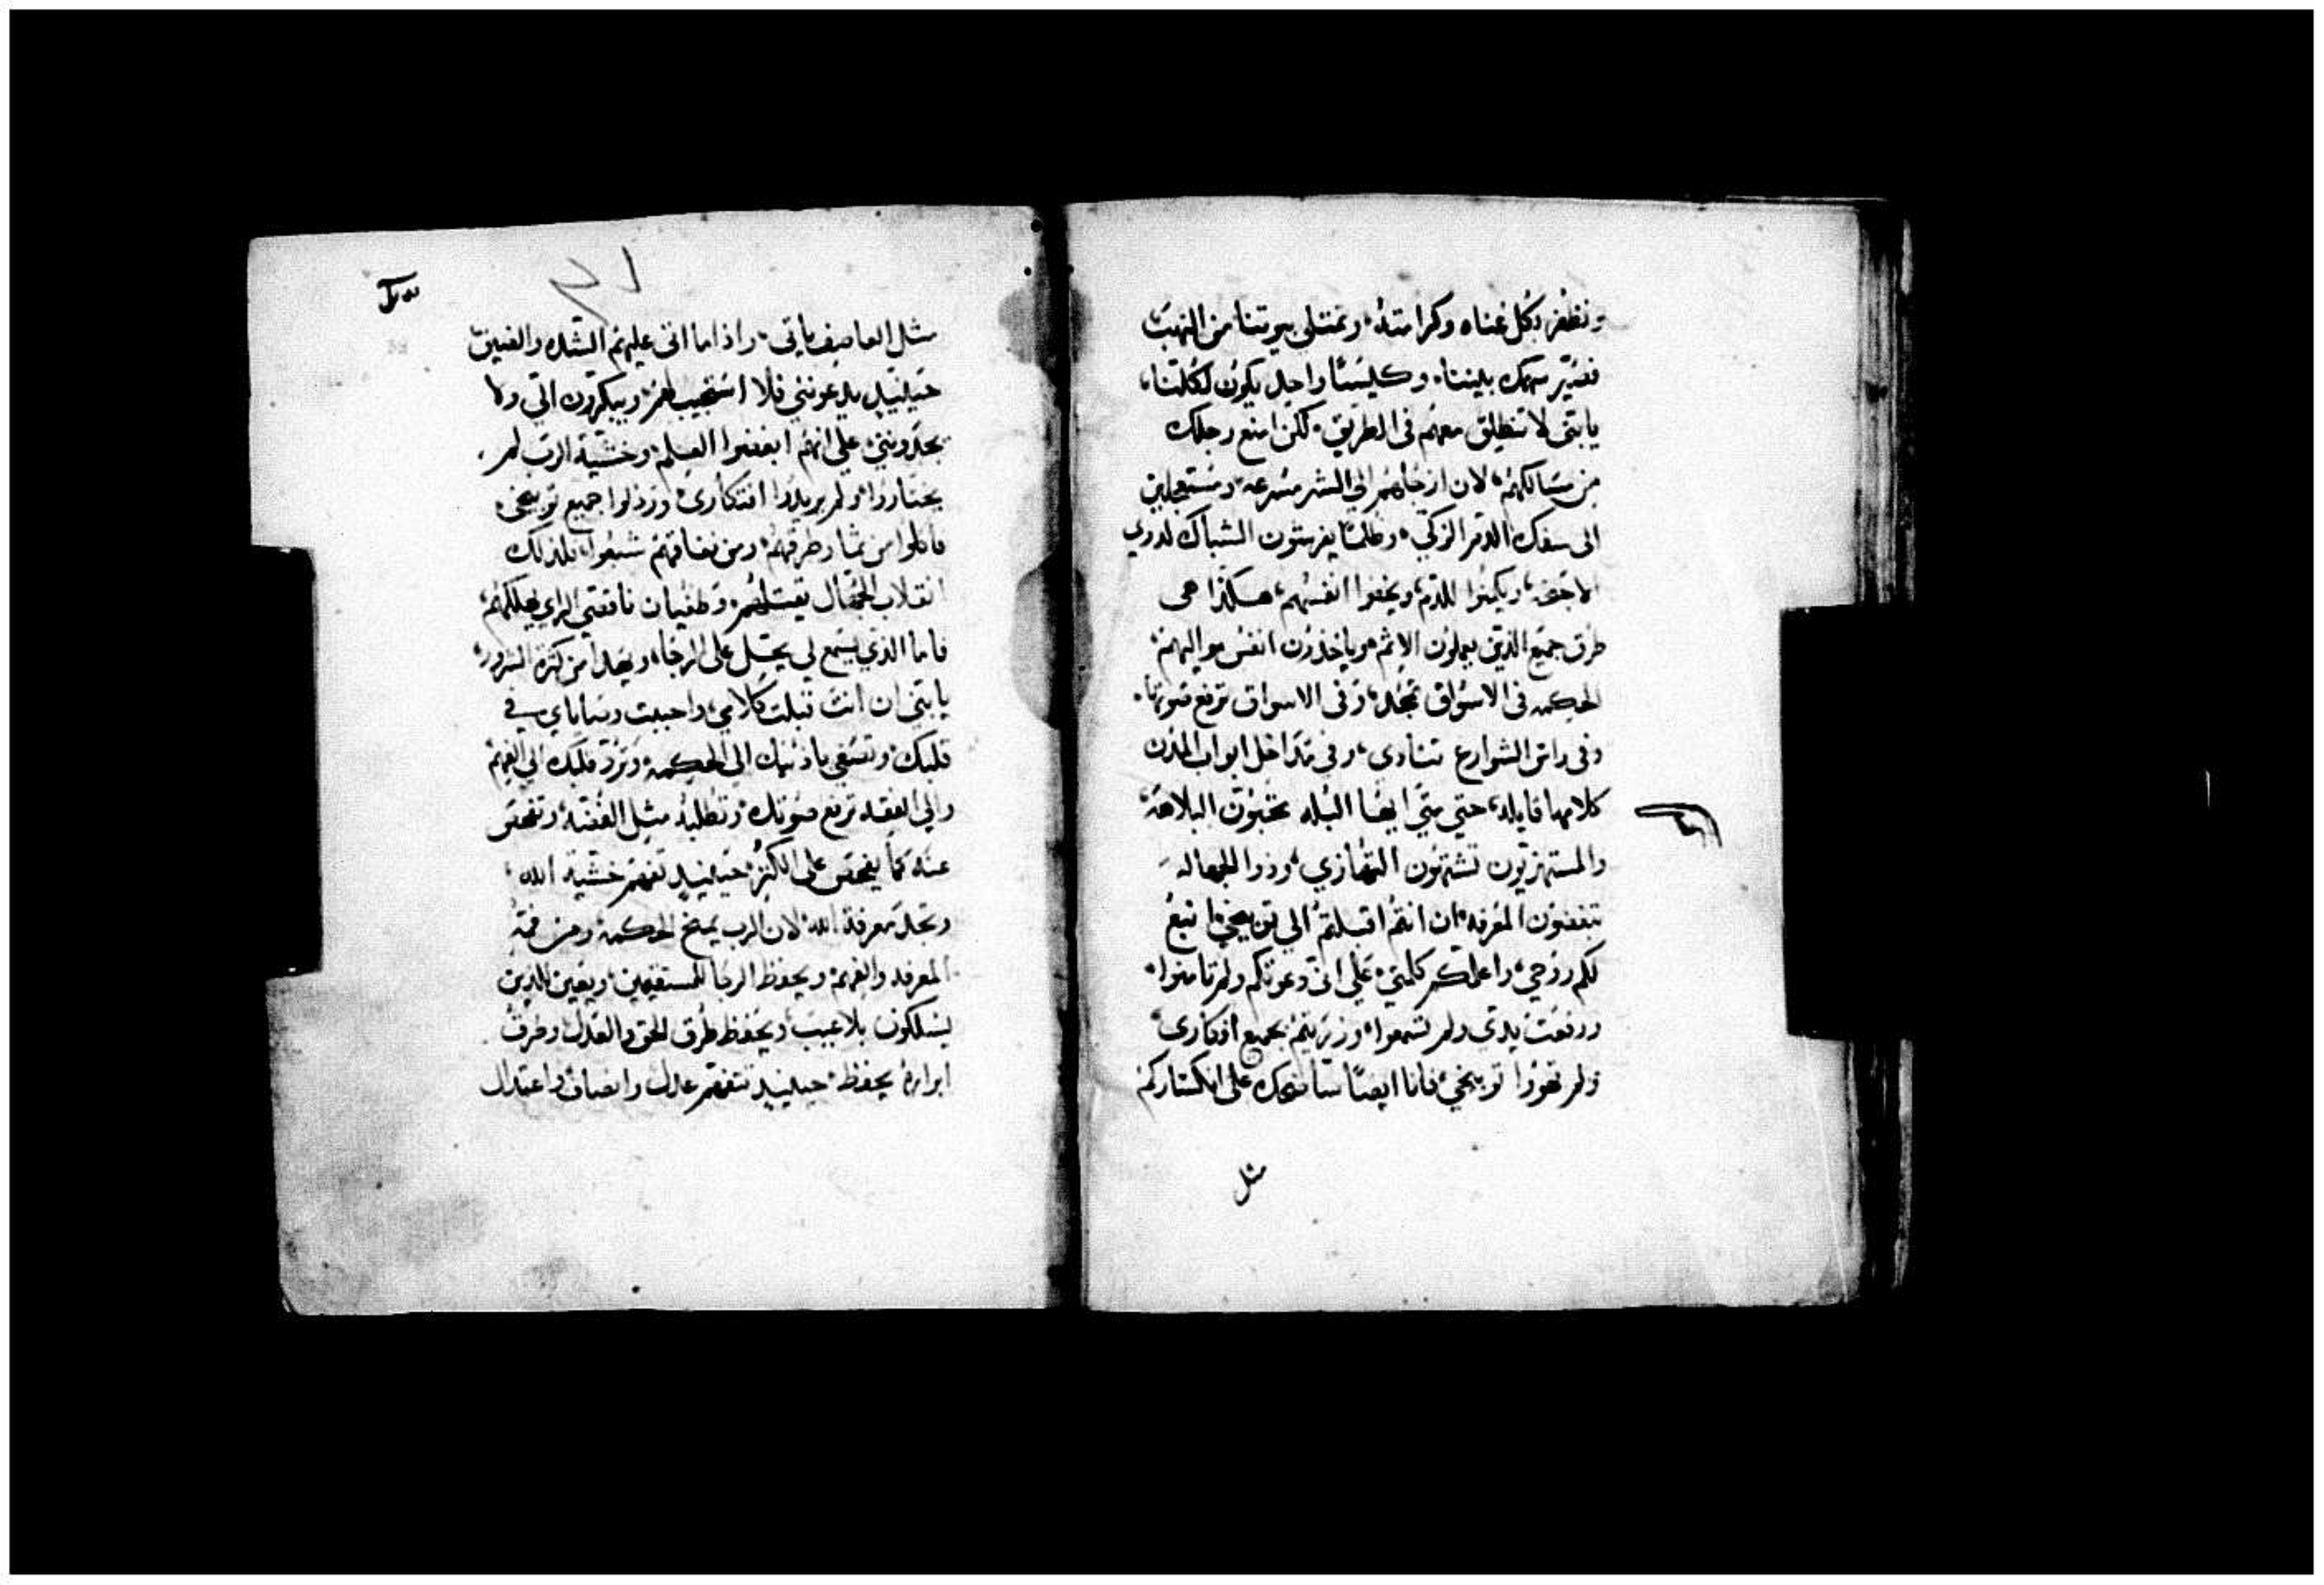 ونظفر بكل غناه وكرامته، ونمتلى بيوتنا من النهب
فصير سهمك بيننا، وكيسًا واحد يكون لكلنا،
يابني لا تنطلق معهم في الطريق، لكن امنع رجلك
من مسالكهم، لان ارجلهم الي الشر مسرعه، ومستعجلين
الى سفك الدم الزكي، وظلمًا يفرشون الشباك لدوي
الاجنحه، ويكمنوا للدم، ويخفوا انفسهم، هكذا هى
طرق جميع الذين يعملون الاثم، وياخذون انفس مواليهم،
الحكمه في الاسواق تمجد، وفى الاسواق ترفع صوتها،
وفى راس الشوارع تنادي، وفي مداخل ابواب المدن
كلامها قايله، حتي متي ايضا البله تحبون البلاهه،
والمستهزيون تشتهون التهازي، وذوا الجهاله
تبغضون المعرفه، ان انتم اقبلتم الي توبيخي، انبع
لكم روحي، واعلمكم كلمتي، علي انى دعوتكم ولم تامنوا،
ورفعت يدي ولم تسمعوا، وزريتم بجميع افكارى،
ولم تهووا توبيخي، فانا ايضًا ساضحك على انكساركم،
مثل
مثل العاصف ياتى، واذا ما اتى عليهم الشده والضيق
حينيذٍ يدعونني فلا استجيب لهم، ويبكرون الي ولا
يجدونني، علي انهم ابغضوا العلم، وخشية الرب لم
يختاروا، ولم يريدوا افتكاري، ورذلوا جميع توبيخي،
فاكلوا من ثمار طرقهم، ومن نفاقهم شبعوا، فلذلك
انقلاب الجهال يقتلهم، وطغيان ناقصي الراي يهلكهم،
فاما الذي يستمع لي يحل على الرجاء، ويهدا من كثرة الشرور،
يابني ان انت قبلت كلامي، واحببت وصاياي في
قلبك، وتصغي باذنيك الى الحكمه، وترد قلبك الي الفهم
والي الفقه ترفع صوتك، وتطلبه مثل الفضه، وتفحص
عنه كما يفحص على الكنز، حينيذٍ تفهم خشية الله،
وتجد معرفة الله، لان الرب يمنح الحكمه، ومن فمه
المعرفه والفهم، ويحفظ الرجا للمستقيمين، ويعين الذين
يسلكون بلا عيب، ويحفظ طرق الحق والعدل، وطرق
ابراره يحفظ، حينيذٍ تتفهم عدل وانصاف واعتدال